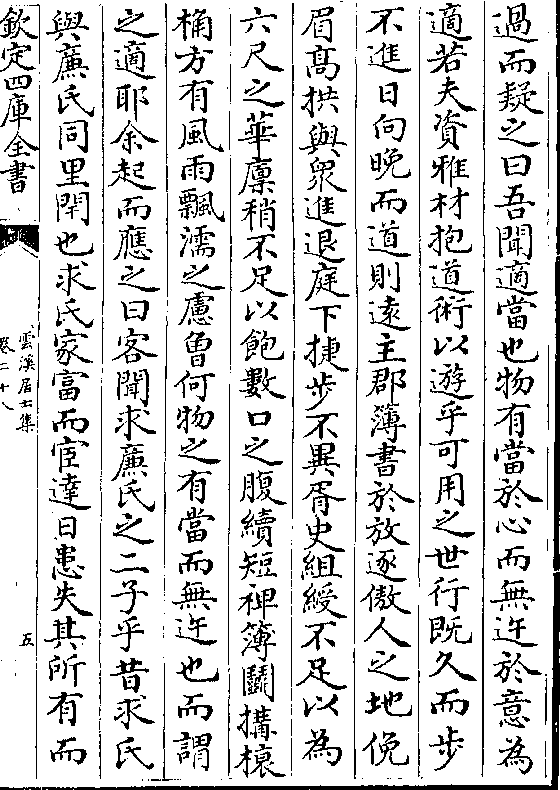 過而疑之曰吾聞適當也物有當於心而無迕於意為
適若夫資雅材抱道術以遊乎可用之世行既久而步
不進日向晚而道則逺主郡簿書於放逐傲人之地俛
眉髙拱與衆進退庭下捷步不異胥史組綬不足以為
六尺之華廪稍不足以飽數口之腹續短裨簿鬭搆榱
桷方有風雨飄濡之慮曽何物之有當而無迕也而謂
之適耶余起而應之曰客聞求亷氏之二子乎昔求氏
與亷氏同里閈也求氏家富而宦達日患失其所有而
欽定四庫全書
雲溪居士集
卷二十八
五